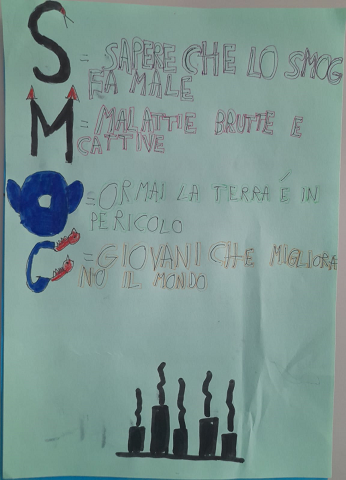 S = SAPERE CHE LO SMOG
FA MALE
M = MALATTIE BRUTTE E
CATTIVE
O = ORMAI LA TERRA É IN
PERICOLO
G = GIOVANI CHE MIGLIORA
NO IL MONDO